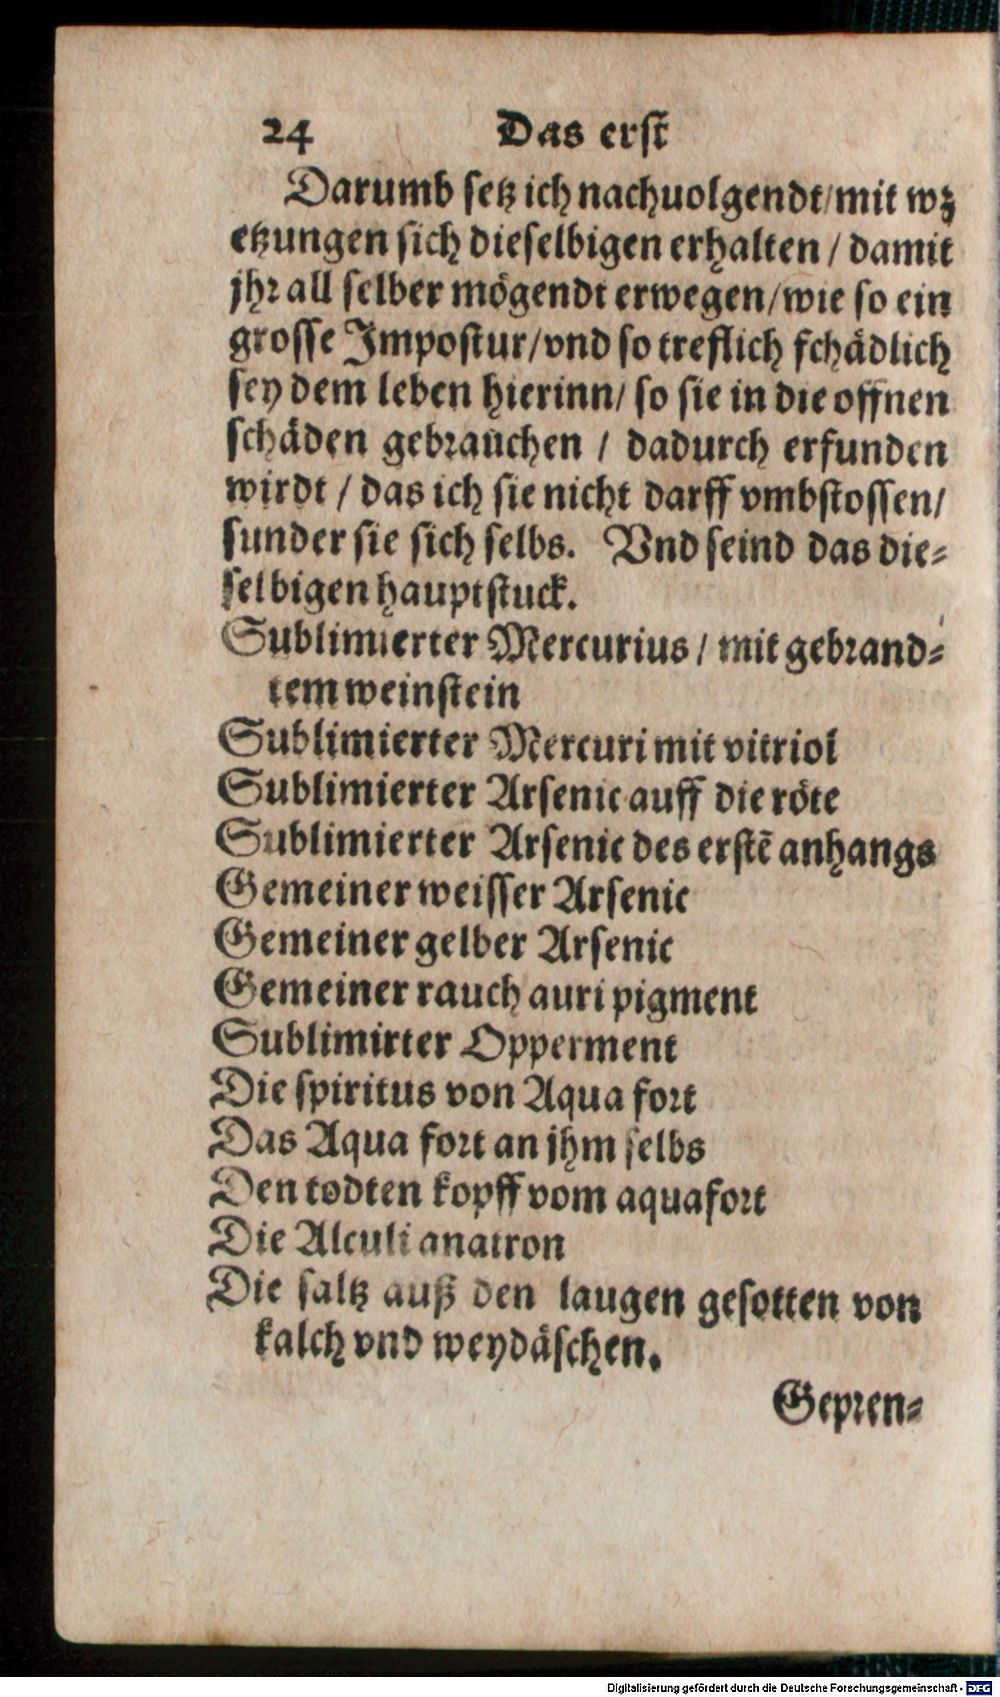 24 Das erst
Darumb setz ich nachuolgendt/mit wz
etzungen sich dieselbigen erhalten / damit
jhr all selber mögendt erwegen/wie so ein
grosse Impostur/vnd so treflich schädlich
sey dem leben hierinn/ so sie in die offnen
schäden gebrauchen / dadurch erfunden
wirdt / das ich sie nicht darff vmbstossen/
sunder sie sich selbs. Vnd seind das die-
selbigen hauptstuck.
Sublimierter Mercurius / mit gebrand-
tem weinstein
Sublimierter Mercuri mit vitriol
Sublimierter Arsenic auff die röte
Sublimierter Arsenic des erstē anhangs
Gemeiner weisser Arsenic
Gemeiner gelber Arsenic
Gemeiner rauch auripigment
Sublimirter Opperment
Die spiritus von Aqua fort
Das Aqua fort an jhm selbs
Den todten kopff vom aquafort
Die Alculi anatron
Die saltz auß den laugen gesotten von
kalch vnd weydäschen.
Gepren-
Digitalisierung gefördert durch die Deutsche Forschungsgemeinschaft - DFG